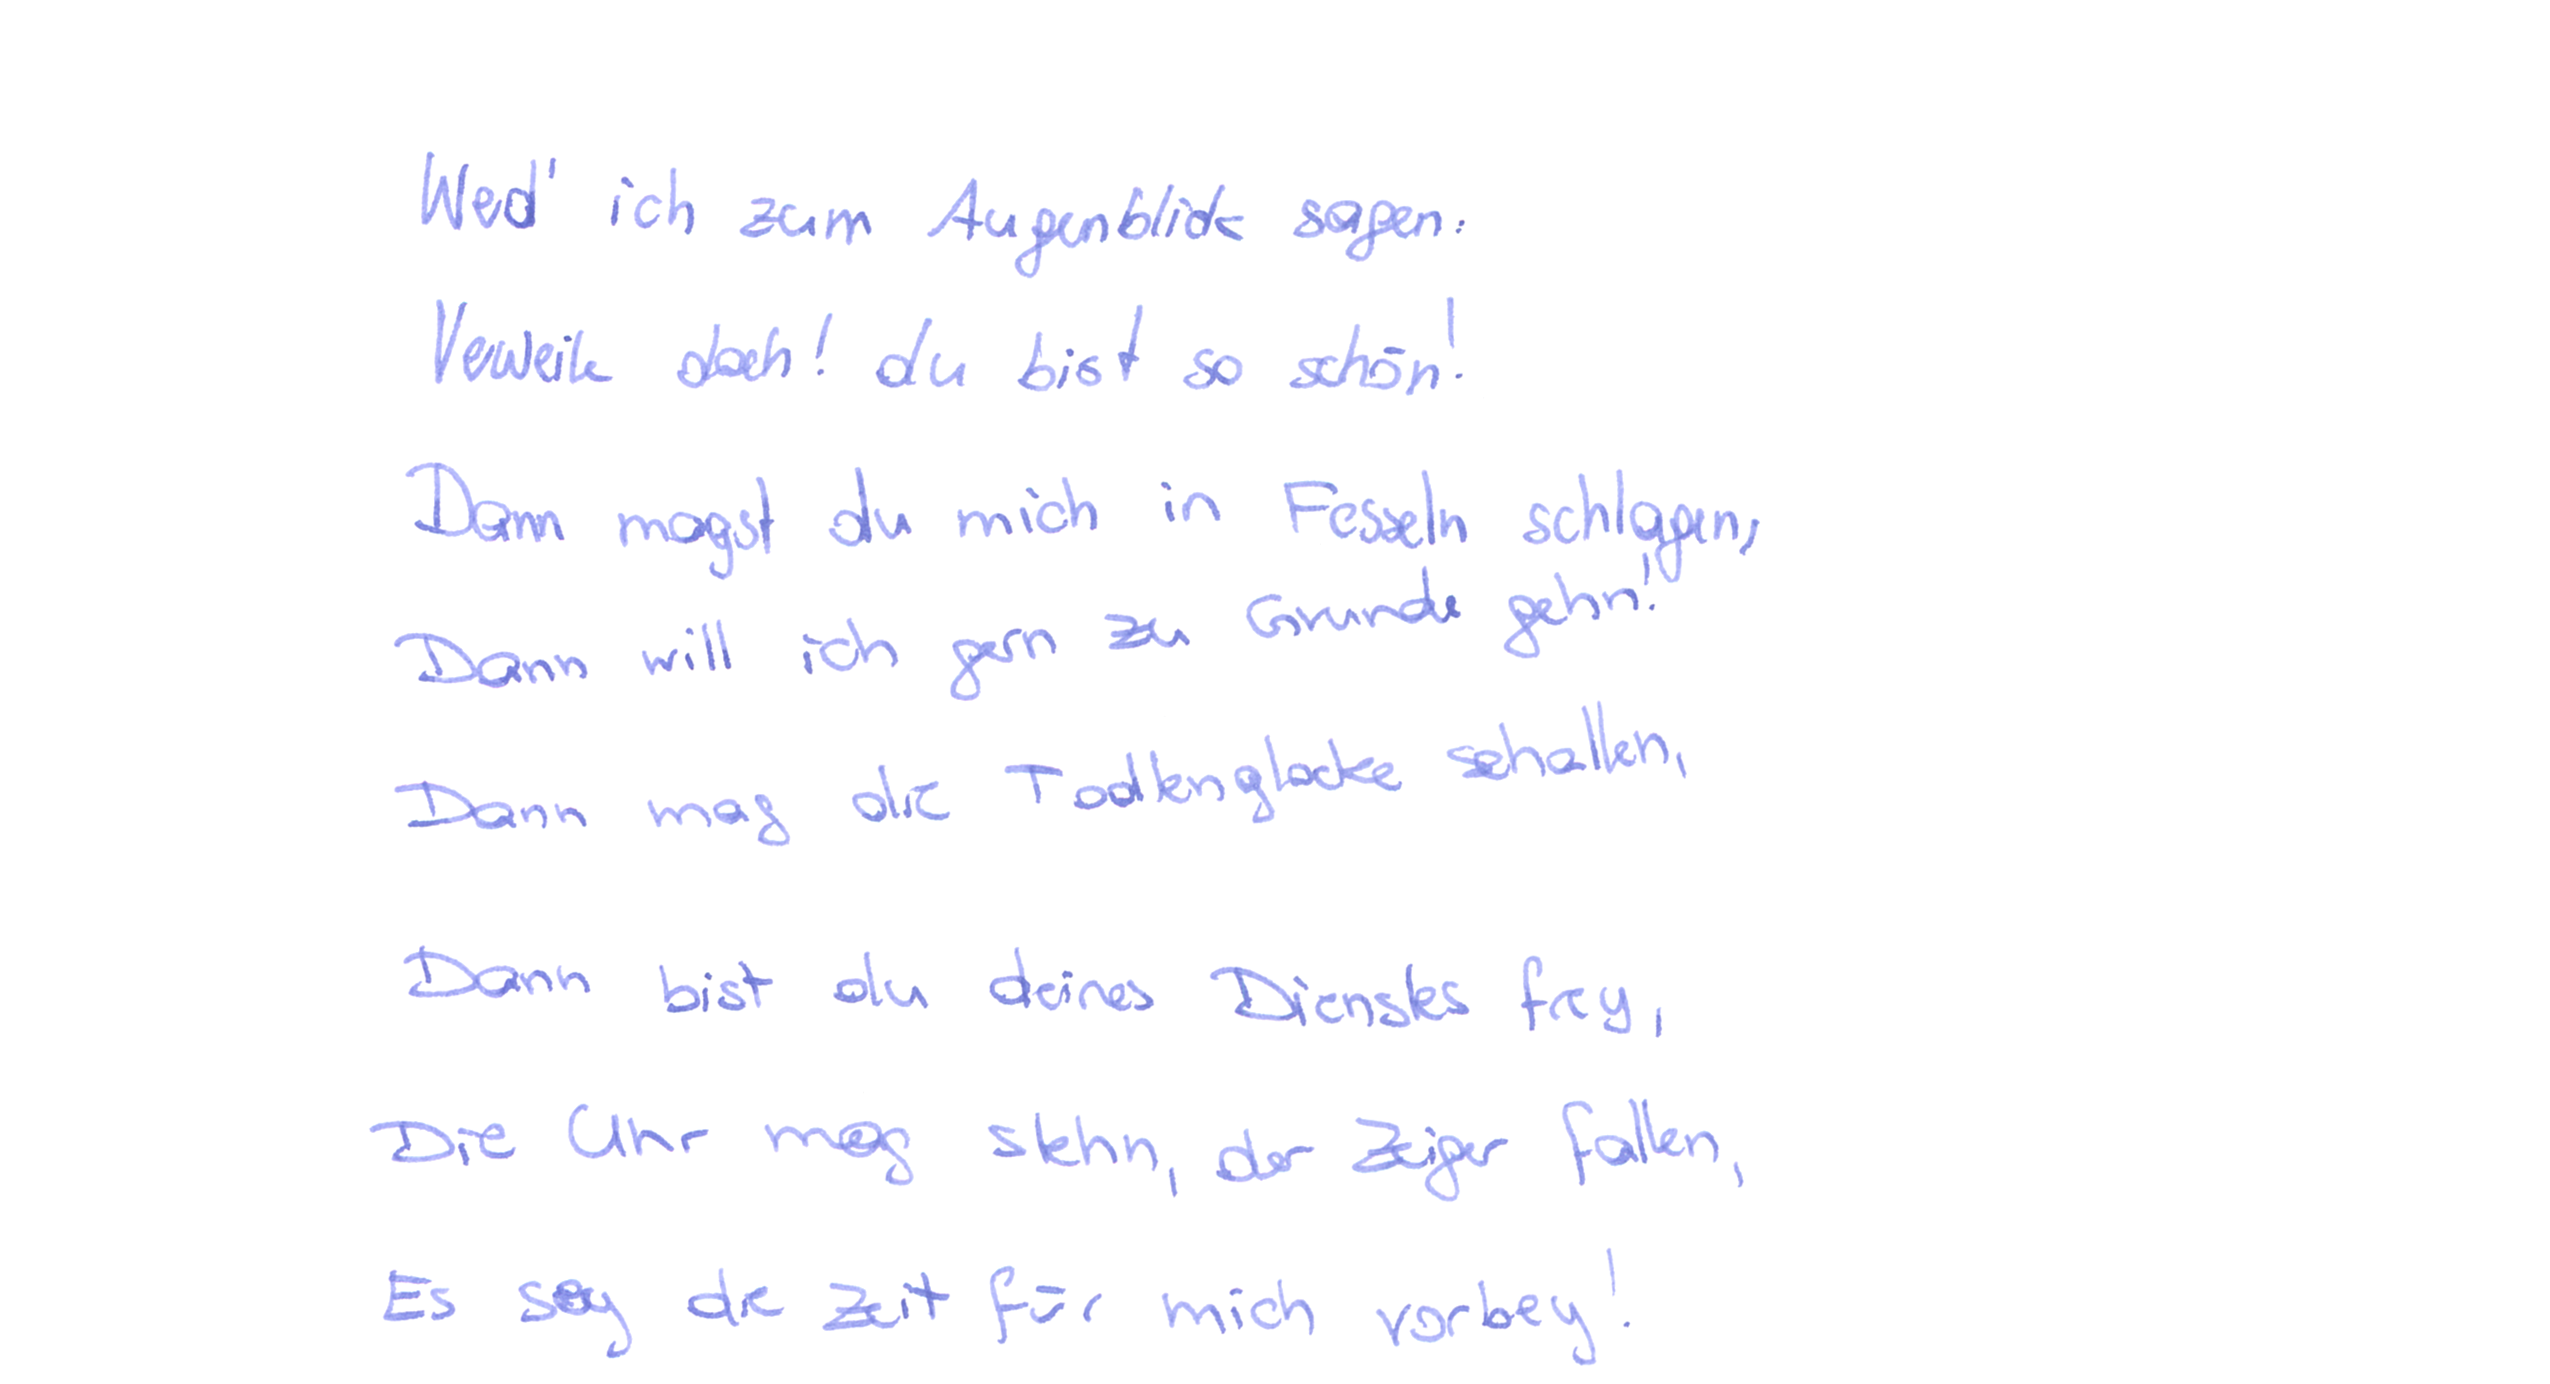 Wed' ich zum Augenblick sagen:
Verweile doch! du bist so schön!
Dann magst du mich in Fesseln schlagen,
Dann will ich gern zu Grunde gehn!
Dann mag die Todtenglocke schallen,
Dann bist du deines Dienstes frey,
Die Uhr mag stehn, der Zeiger fallen,
Es sey die Zeit für mich vorbey!